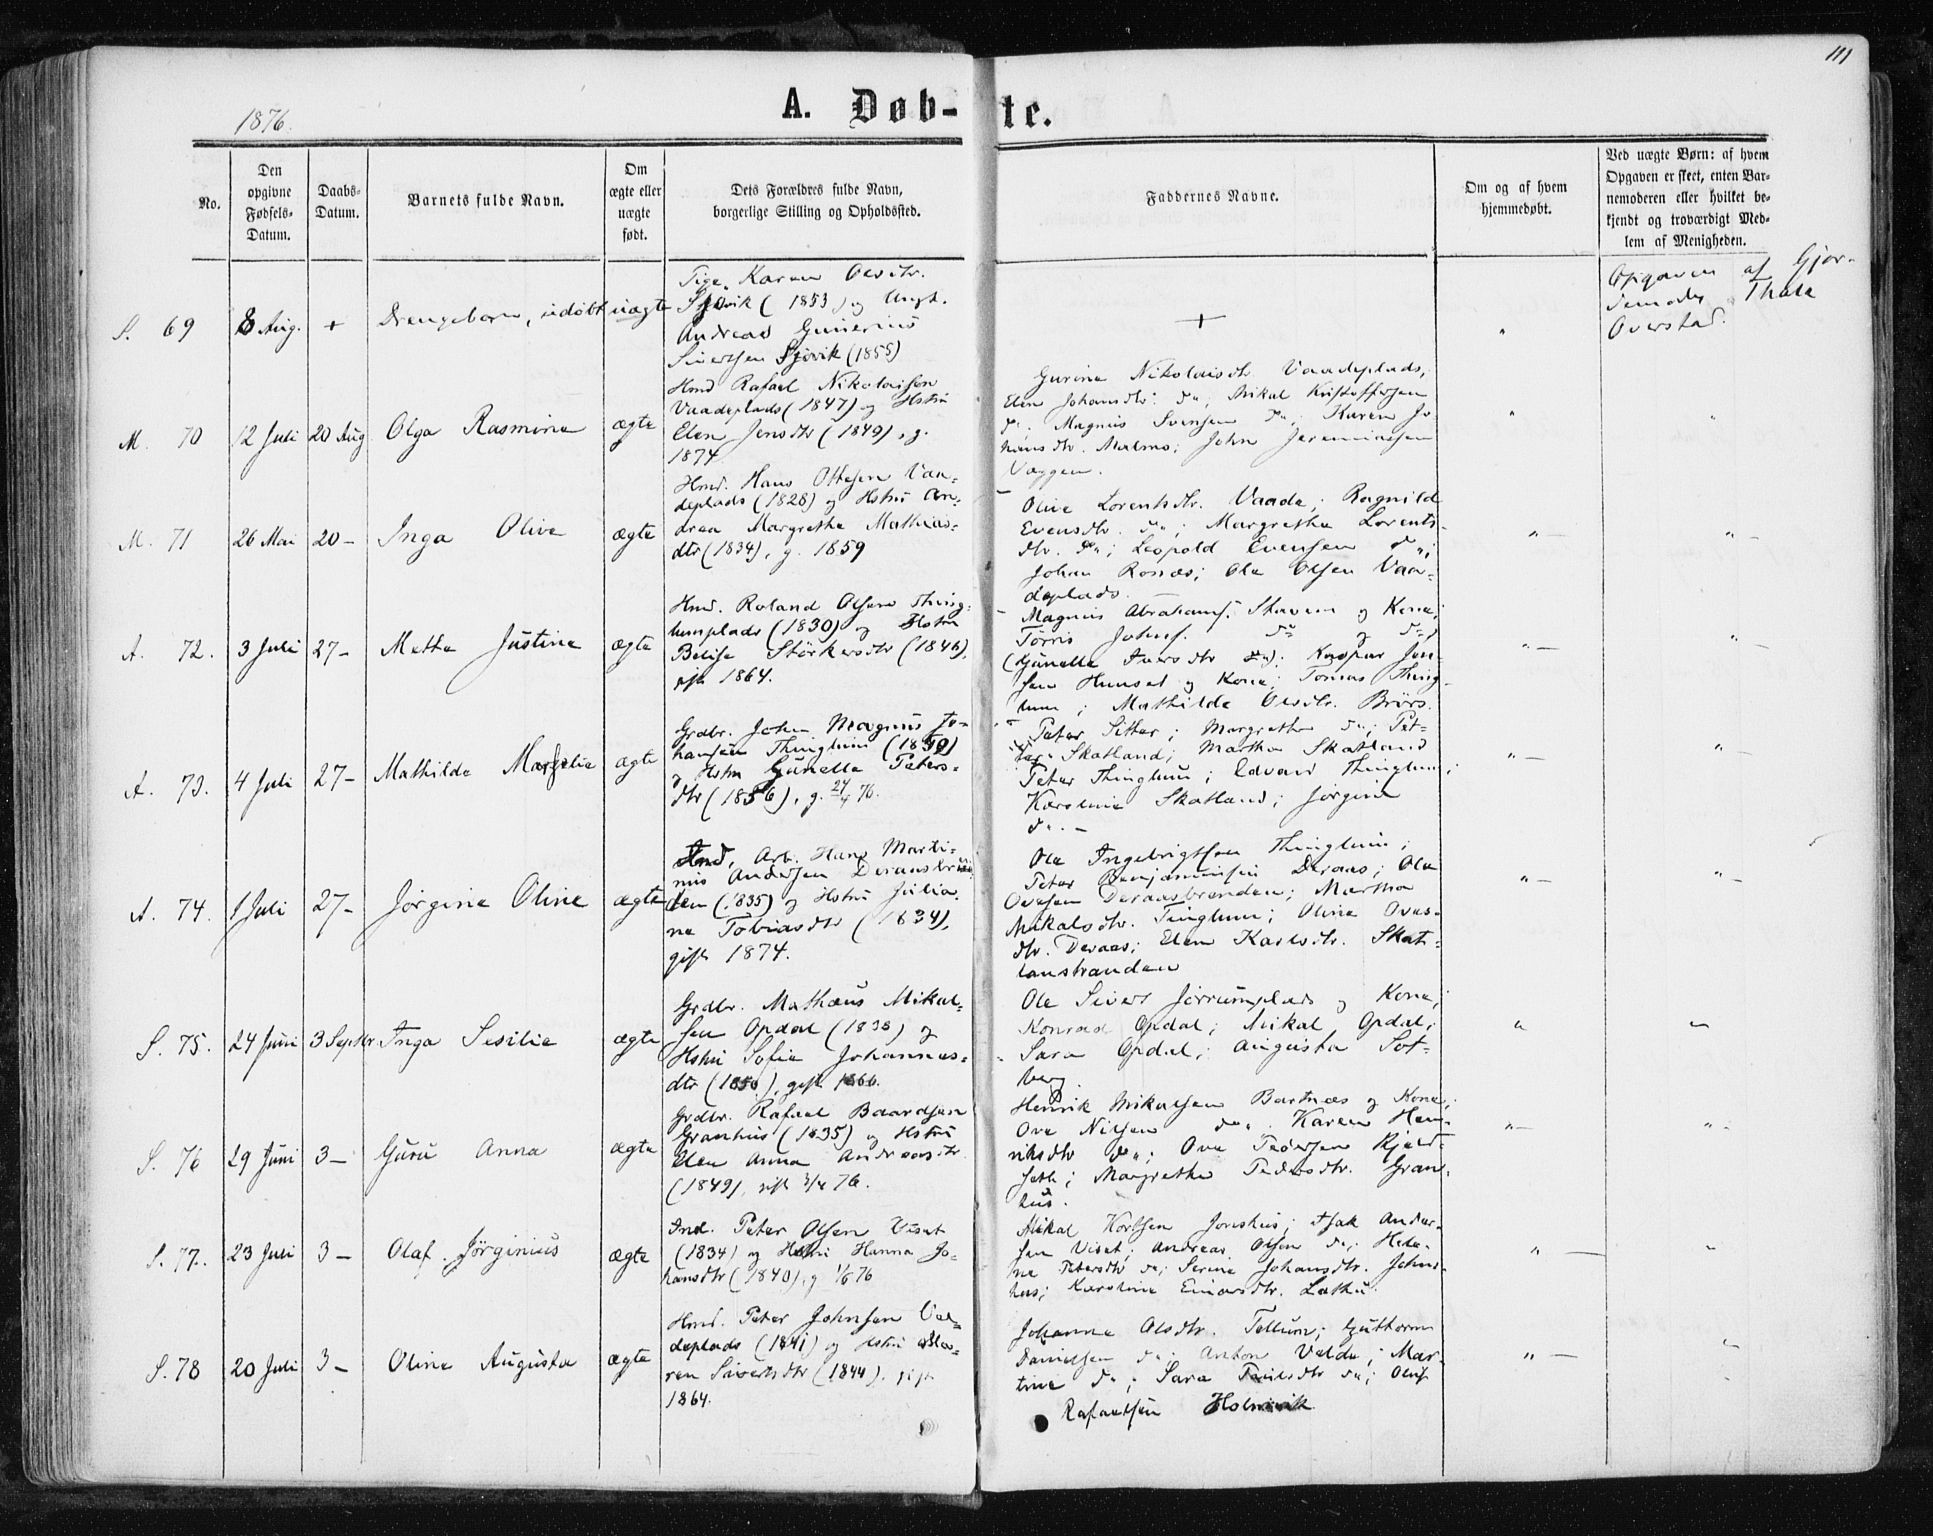 111
1876.
A. Døb-te.
No.
Den opgivne Fødsels-Datum.
Daabs-Datum.
Barnets fulde Navn.
Om ægte eller uægte født.
Dets Forældres fulde Navn, borgerlige Stilling og Opholdssted.
Faddernes Navne.
Om og af hvem hjemmedøbt.
Ved uægte Børn: af hvem Opgaven er skeet, enten Barnemoderen eller hvilket bekjendt og troværdigt Medlem af Menigheden.
S. 69 8 Aug. + Drengebarn, udøbt uægte
Pige Karen Olsdtr.
Sjøvik (1853) og Ungk.
Andreas Gunerius
Sivertsen Sjövik (1855)
+
"
Opgaven af Gjor-
demoder Thale
Overstad.
M. 70 12 Juli 20 Aug Olga Rasmine ægte
Hmd Rafael Nikolaisen
Vaadeplads (1847) og Hstru
Elen Jensdtr (1849), g.
1874
Gurine Nikolaisdtr Vaadeplads,
Elen Johansdtr. do; Mikal Kristoffersen
do. Magnus Svensen do; Karen Jo
hansdtr. Malmo; John Jeremiassen
Væggen.
" "
M. 71 26 Mai 20 — Inga Olive ægte
Hmd. Hans Ottesen Vaa-
deplads (1828) og Hstru An-
drea Margrethe Mathias-
dtr (1834), g. 1859
Olive Lorentsdtr. Vaade; Ragnild
Evensdtr. do; Margrethe Lorents-
dtr. do; Leopold Evensen do;
Johan Rosnæs; Ole Olsen Vaa-
deplads.
" — " —
A. 72. 3 Juli 27 — Mette Justine ægte
Hmd. Roland Olsen Thing-
lumplads (1830) og Hstru
Belise Störkersdtr (1846),
gift 1864.
Magnus Abrahams. Skavem og Kone;
Törris Johns. do og do;
(Gunelle Iversdtr do); Kaspar Jen-
sen Hunset og Kone; Tomas Thing-
lum; Mathilde Olsdtr. Brörs.
" — "
A. 73. 4 Juli 27 — Mathilde Marselie ægte
Grdbr. John Magnus Jo-
hansen Thinglum (1850)
og Hstru Gunelle Peters-
dtr (1856), g. 24/4 76.
Peter Sitter; Margrethe do; Pet-
ter Skatland; Martha Skatland
Peter Thinglum; Edvard Thinglum;
Karoline Skatland; Jørgine
do. —
" — " —
A. 74. 1 Juli 27 — Jørgine Oline ægte
Ind. Arb. Hans Marti-
nus Andersen Deraasbræn-
den (1835) og Hstru Julia-
ne Tobiasdtr (1834),
gift 1874.
Ole Ingebrigtsen Thinglum;
Peter Benjaminsen Deraas; Ole
Ovesen Deraasbrænden; Martha
Mikalsdtr. Tinglum; Oline Oves-
dtr. Deraas; Elen Karlsdtr. Skat-
lanstranden
" — " —
S. 75. 24 Juni 3 Septbr. Inga Sesilie ægte
Grdbr. Mathæus Mikal-
sen Opdal (1838) og
Hstru Sofie Johannes-
dtr (1850), gift 1866.
Ole Sivert Jörrumplads og Kone;
Konrad Opdal; Mikal Opdal;
Sara Opdal; Augusta Sol-
berg.
" "
S. 76 29 Juni 3 — Guru Anna ægte
Grdbr. Rafael Baardsen
Granhus (1835) og Hstru
Elen Anna Andreasdtr.
(1849), gift 3/4 76.
Henrik Mikalsen Bartnæs og Kone;
Ove Nilsen do. Karen Hen-
riksdtr do; Ove Pedersen Kjeld-
seth; Margrethe Pedersdtr. Gran-
hus.
" — " -
S. 77. 23 Juli 3 — Olaf Jørginius ægte
Ind. Peter Olsen Viset
(1834) og Hstru Hanna Jo-
hansdtr (1840), g 1/6 76
Mikal Kortsen Jonshus; Isak Ander-
sen Viset; Andreas Olsen do; Hele-
ne Petersdtr do; Serine Johansdtr. Johns-
hus; Karoline Einarsdtr. Lathu.
" — "
S. 78 20 Juli 3 — Oline Augusta ægte
Hmd. Peter Johnsen Vel-
deplads (1841) og Hstru Ma-
ren Siversdtr (1844), gift
1864.
Johanne Olsdtr. Tellum; Guttorm
Danielsen do; Anton Velde; Mar-
tine do; Sara Troilsdtr do; Oluf
Rafaelsen Holmvik
" — "